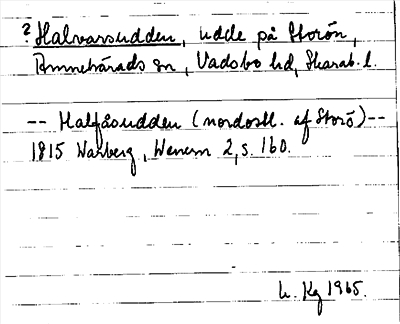 ? Halvarsudden, udde på Storön,
Amnehärads sn, Vadsbo hd, Skarab. l.
-- Halfåsudden (nordostl. af Storö) --
1815 Warberg, Wenern 2, s. 160.
h. Kg 1965.